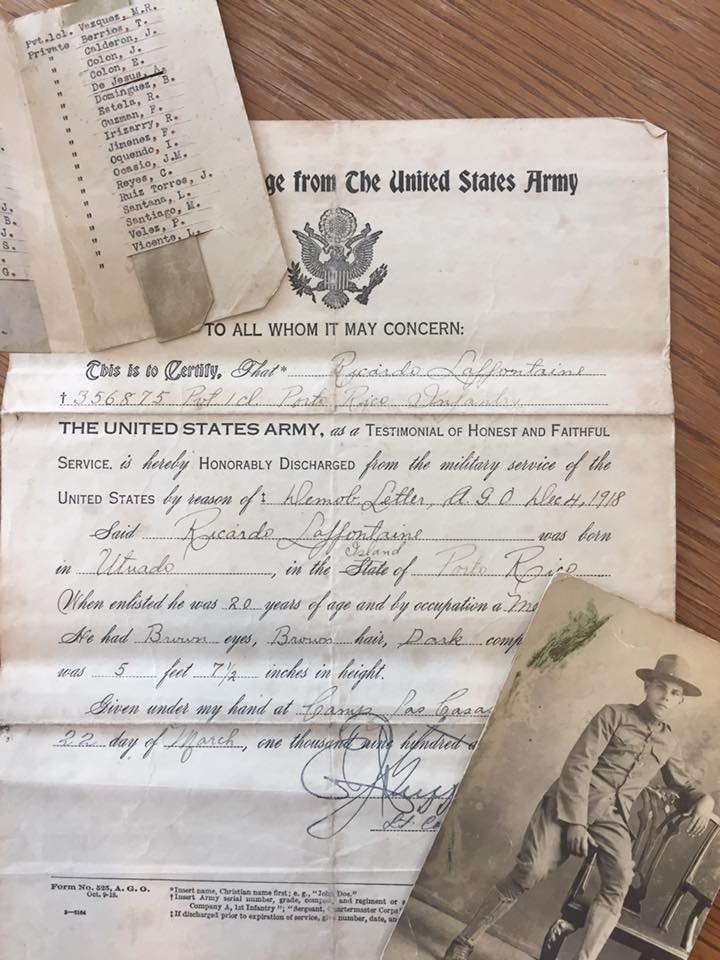 Pvt.1cl. Vazquez, M.R.
Private Berrios, T.
" Calderon, J.
" Colon, J.
" Colon, E.
" De Jesus, A.
" Dominguez, B.
" Estela, R.
" Guzman, F.
" Irizarry, R.
" Jimenez, F.
" Oquendo, I.
" Ocasio, J.M.
" Reyes, C.
" Ruiz Torres, J.
" Santana, L.
" Santiago, M.
" Velez, P.
" Vicente, L.
J.
B.
J.
S.
G.
ge from The United States Army
TO ALL WHOM IT MAY CONCERN:
This is to Certify, That* Ricardo Laffontaine
† 356875 Pvt 1cl. Porto Rico Infantry
THE UNITED STATES ARMY, as a TESTIMONIAL OF HONEST AND FAITHFUL
SERVICE, is hereby HONORABLY DISCHARGED from the military service of the
UNITED STATES by reason of ‡ Demob Letter, A.G.O Dec 4, 1918
Said Ricardo Laffontaine was born
Island
in Utuado, in the State of Porto Rico
When enlisted he was 20 years of age and by occupation a
He had Brown eyes, Brown hair, Dark comp
was 5 feet 7½ inches in height.
Given under my hand at Camp Las Casas
22 day of March, one thousand nine hundred a
Lt. Co
Form No. 525, A. G. O.
Oct. 9-18.
3—5164
*Insert name, Christian name first; e. g., "John Doe."
†Insert Army serial number, grade, company and regiment or
Company A, 1st Infantry"; "Sergeant, Quartermaster Corps
‡If discharged prior to expiration of service, give number, date, an